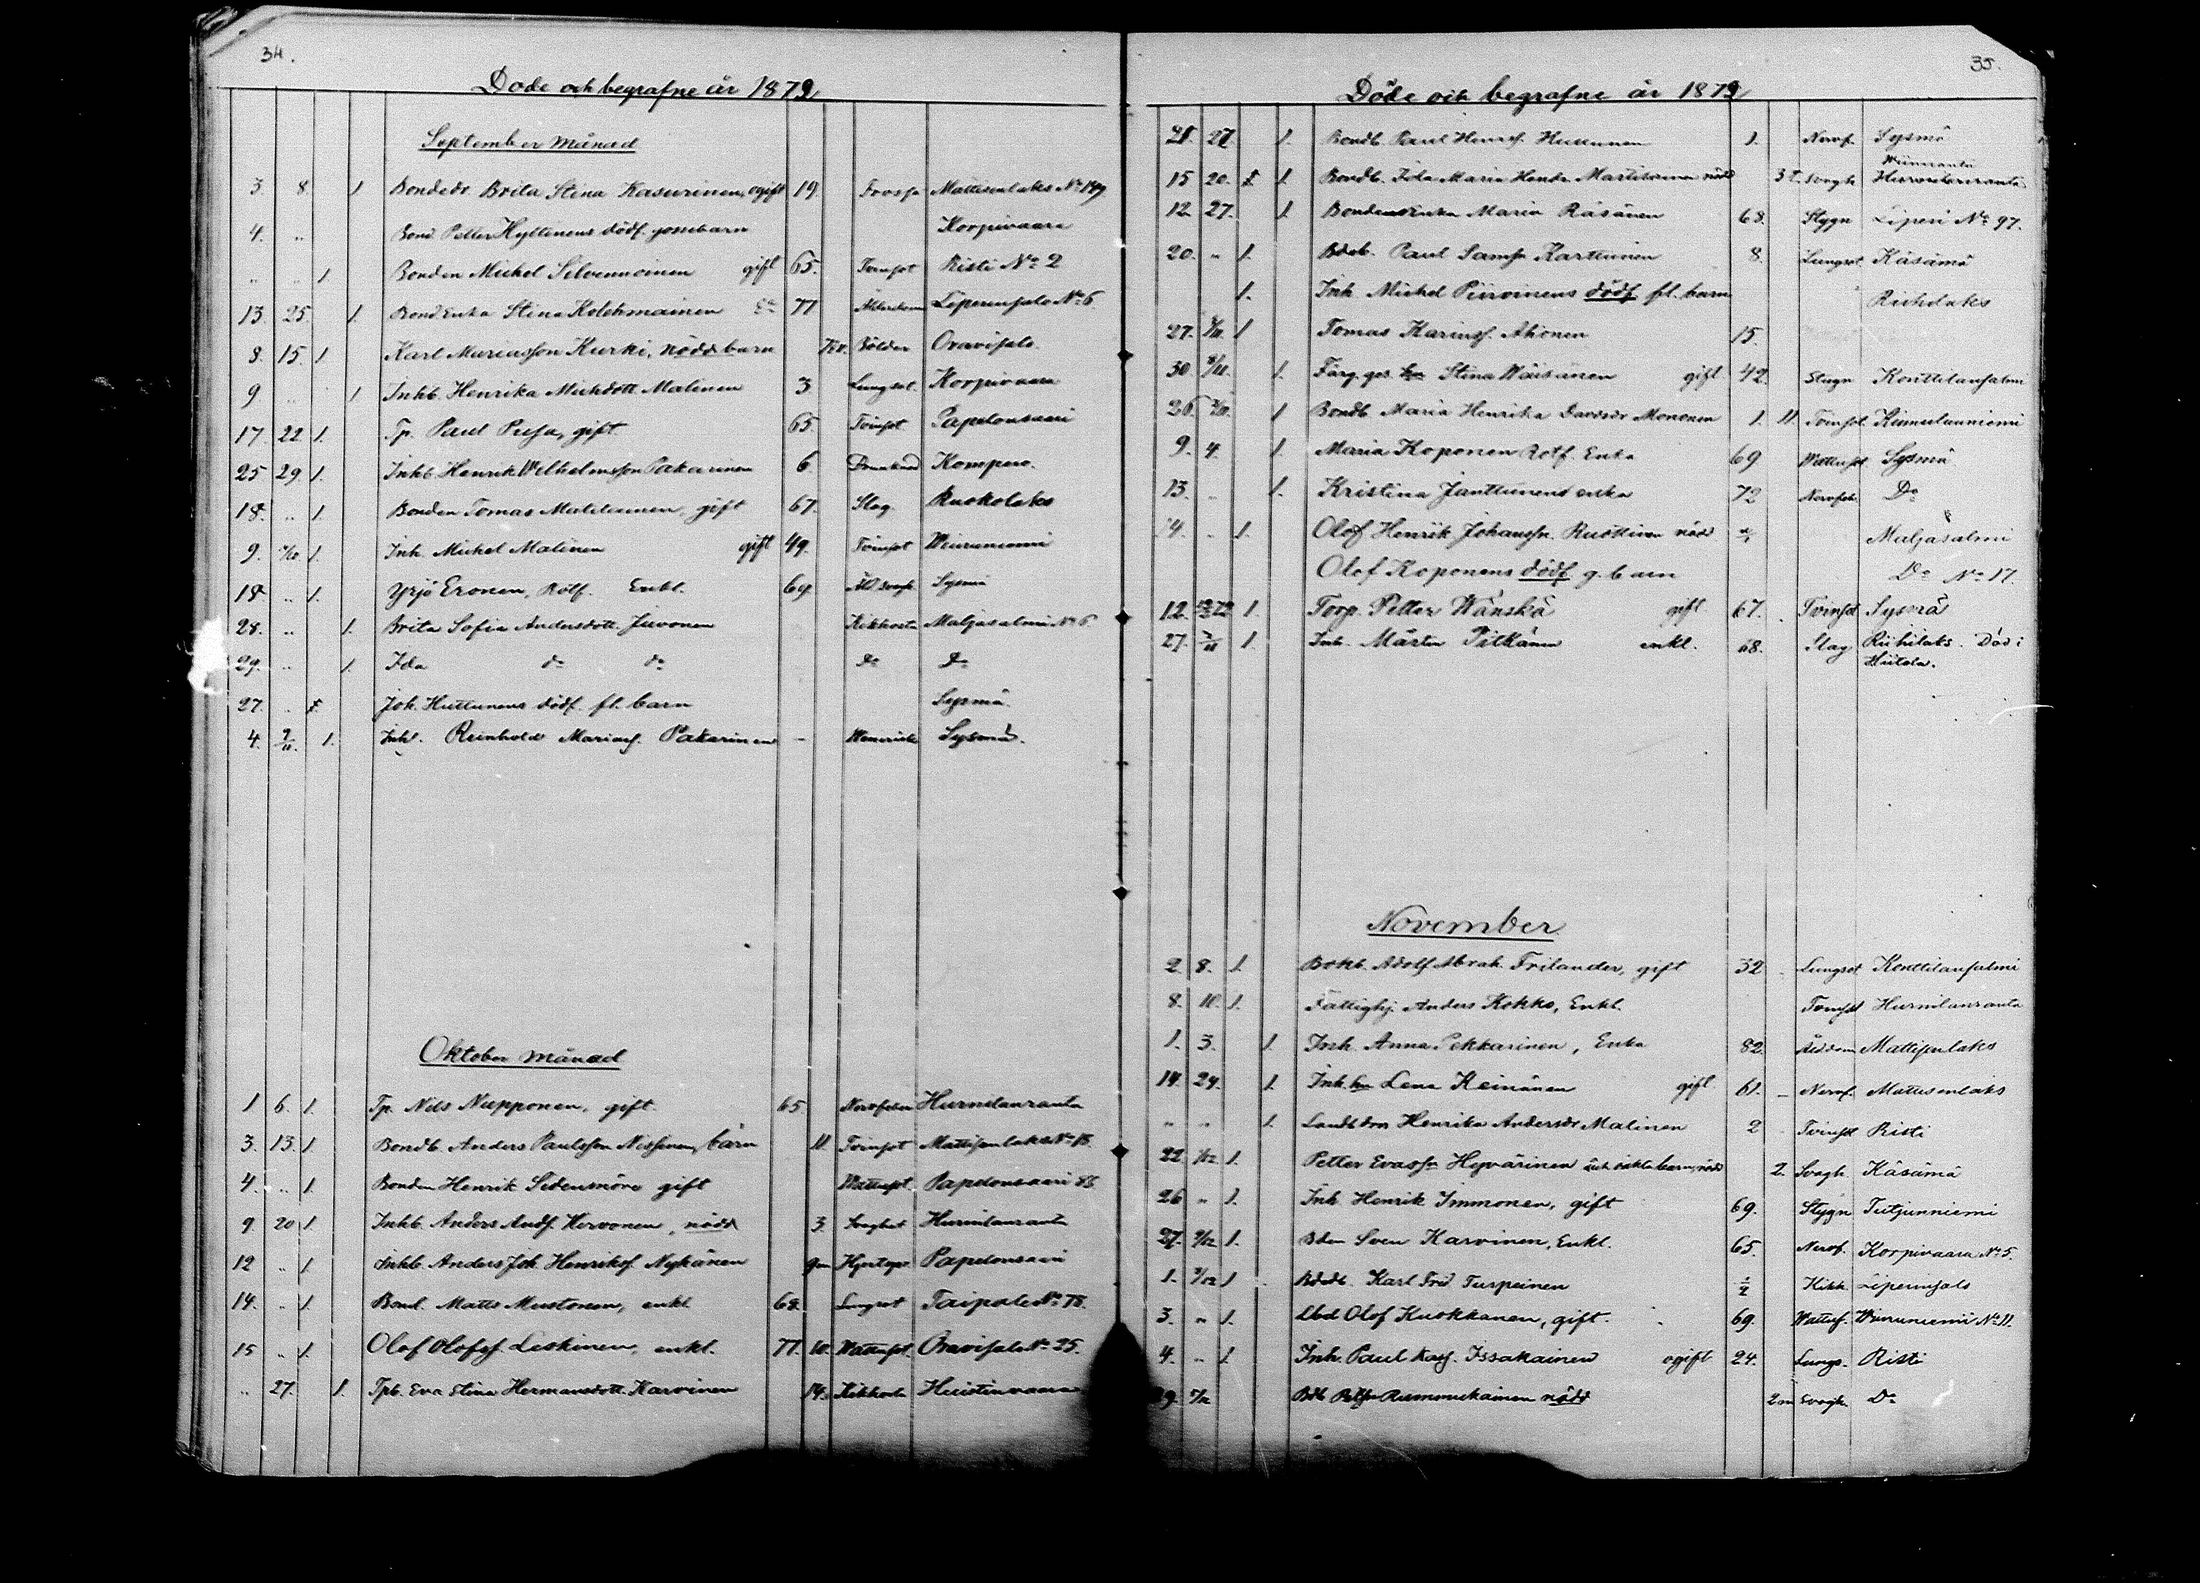 34.
Döde och begrafne år 1879
September månad
3 8. 1. Bondedr Brita Stina Kasurinen, ogift 19. Frossa Mattisenlaks No 149
4. „ Bond. Petter Hyttinens dödf. gossebarn Korpivaara
„ „ 1 Bonden Michel Silvennoinen gift 65. Tvinsot Risti No 2
13. 25. 1. Bond.Enka Stina Kolehmainen Do 77 Liperinsalo No 6
8. 15. 1. Karl Mariasson Kurki, nödd barn Bölder Oravisalo.
9 „ 1 Inhb. Henrika Michdott. Malinen 3 Lungsot. Korpivaara
17. 22 1. Tp. Paul Pusa, gift 65. Tvinsot Papelonsaari
25 29. 1. Inhb. Henrik Vilhelmsson Pakarinen 6. Drunknad Kompero.
18. „ 1. Bonden Tomas Matilainen, gift 67. Slag. Ruokolaks
9. 1. Inh. Michel Malinen gift 49. Tvinsot Wiiruniemi
18 „ 1. Yrjö Eronen, Rotf. Enkl. 69. Sysmä
28. „ 1. Brita Sofia Andersdott. Juvonen Kikhosta Maljasalmi No 6
29. „ 1. Ida do do Do Do
27. „ 1. Joh. Huttunens dödf. fl. barn Sysmä.
4. 1. Inh. Reinhold Marias. Pakarinen – Sysmä.
Oktober månad
1 6. 1. Tp. Nils Niupponen, gift 65. Nervfeber Hurnilanranta
3. 13. 1 Bondb. Anders Paulsson Nissinen, barn 11. Tvinsot Mattisenlaks No 18
4. „ 1. Bonden Henrik Sidensnöre gift Wattusot. Papelonsaari 86
9 20 1. Inhb. Anders Andf. Hervonen, nödd 3. Svaghet Hurnilanranta
12 „ 1 Inhb. Anders Joh. Henriksf. Nykänen 9m Papelonsaari
14. „ 1. Bond. Matts Mustonen, enkl. 68. Lungsot Taipale No 78.
15 „ 1. Olof Olofsf. Leskinen, enkl. 77. 10. Wattusot. Oravisalo No 25.
„ 27. 1. Tpb. Eva Stina Hermansdott. Karvinen 14. Kikhosta Huistinvaara
35.
Döde och begrafne år 1879
21. 27. 1. Bondb. Paul Henrsf. Huttunen 1. Nervf. Sysmä
15 20. 1. 1. Bondb. Ida Maria Henda. Martikainen nödd 3t. Svagh. Hurnilanranta
12. 27. 1. Bondenenka Maria Räsänen 68. Stygn Liperi No 97.
20. „ 1. Bdeb. Paul Samsn Karttunen 8. Lungsot. Käsämä
1. Inh. Michel Piiroinens dödf fl. barn Riihilaks
27. 1 Tomas Karinsf. Ahonen 15.
30 1. Färg.ges. Stina Wäisänen gift 42. Stygn Konttilansalmi
26. 1 Bondb. Maria Henrika Davidsdr Mononen 1. 11. Tvinsot. Kinnulanniemi
9. 4. 1 Maria Koponen Rotf. Enka 69 Wattusot Sysmä
13. „ 1. Kristina Janttunens enka 72 Nervfeb. Do
4. „ 1. Olof Henrik Johansson Ruottinen nödd Maljasalmi
Olof Koponens dödf g.barn Do No 17.
12. 1 Torp. Petter Wänskä gift 67. Tvinsot Sysmä
27. 1. Inh. Mårten Pitkänen enkl. 68. Slag Riihilaks. Död i Hiitola.
November
2 8. 1. Bokb. Adolf Abrah. Frilander, gift 32 – Lungsot Konttilansalmi
8. 10. 1. Fattighj. Anders Kokko, Enkl. Tvinsot Hurnilanranta
1. 3. 1. Inh. Anna Pekkarinen, Enka 82. Ålddom Mattisenlaks
14. 24. 1. Inh. Lena Keinänen gift 61. – Nervf. Mattisenlaks
„ „ 1. Landbdor Henrika Andersdr Malinen 2 – Tvinsot Risti
22. 1/12 1. Petter Evassn Hyvärinen oäkta barn, nödd 2. Svagh. Käsämä
26 „ 1. Inh. Henrik Immonen, gift 69. Stygn Tutjunniemi
27. 1. Bden Sven Karvinen, Enkl. 65. Nervf. Korpivaara No 5.
1. 1 Bdeb. Karl Fred. Turpeinen 1/2 Kikh. Liperinsalo
3. „ 1. Lbd. Olof Kuokkanen, gift. 69. Wattusf. Wiiruniemi No 11.
4. „ 1. Inh. Paul Issakainen ogift 24. Lungs. Risti
29. Bdb. Rummukainen nödd 2m Svagh. Do